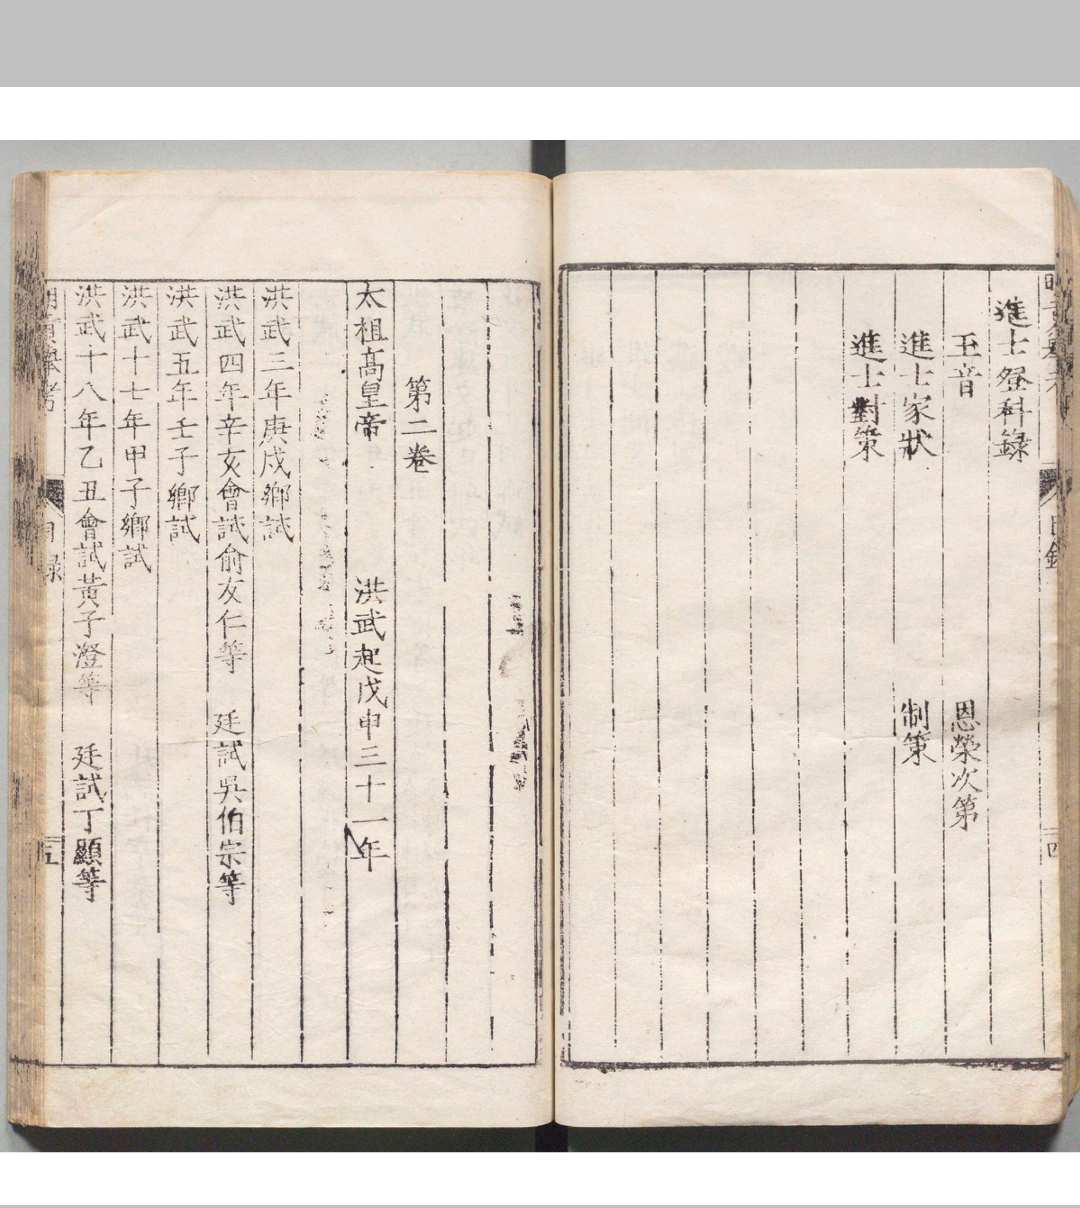 目錄 四
進士登科錄
玉音 恩榮次第
進士家狀 制策
進士對策
第二卷
太祖高皇帝 洪武起戊申三十一年
洪武三年庚戌鄉試
洪武四年辛亥會試俞友仁等 廷試吳伯宗等
洪武五年壬子鄉試
洪武十七年甲子鄉試
洪武十八年乙丑會試黃子澄等 廷試丁顯等
貢舉考 目錄 五